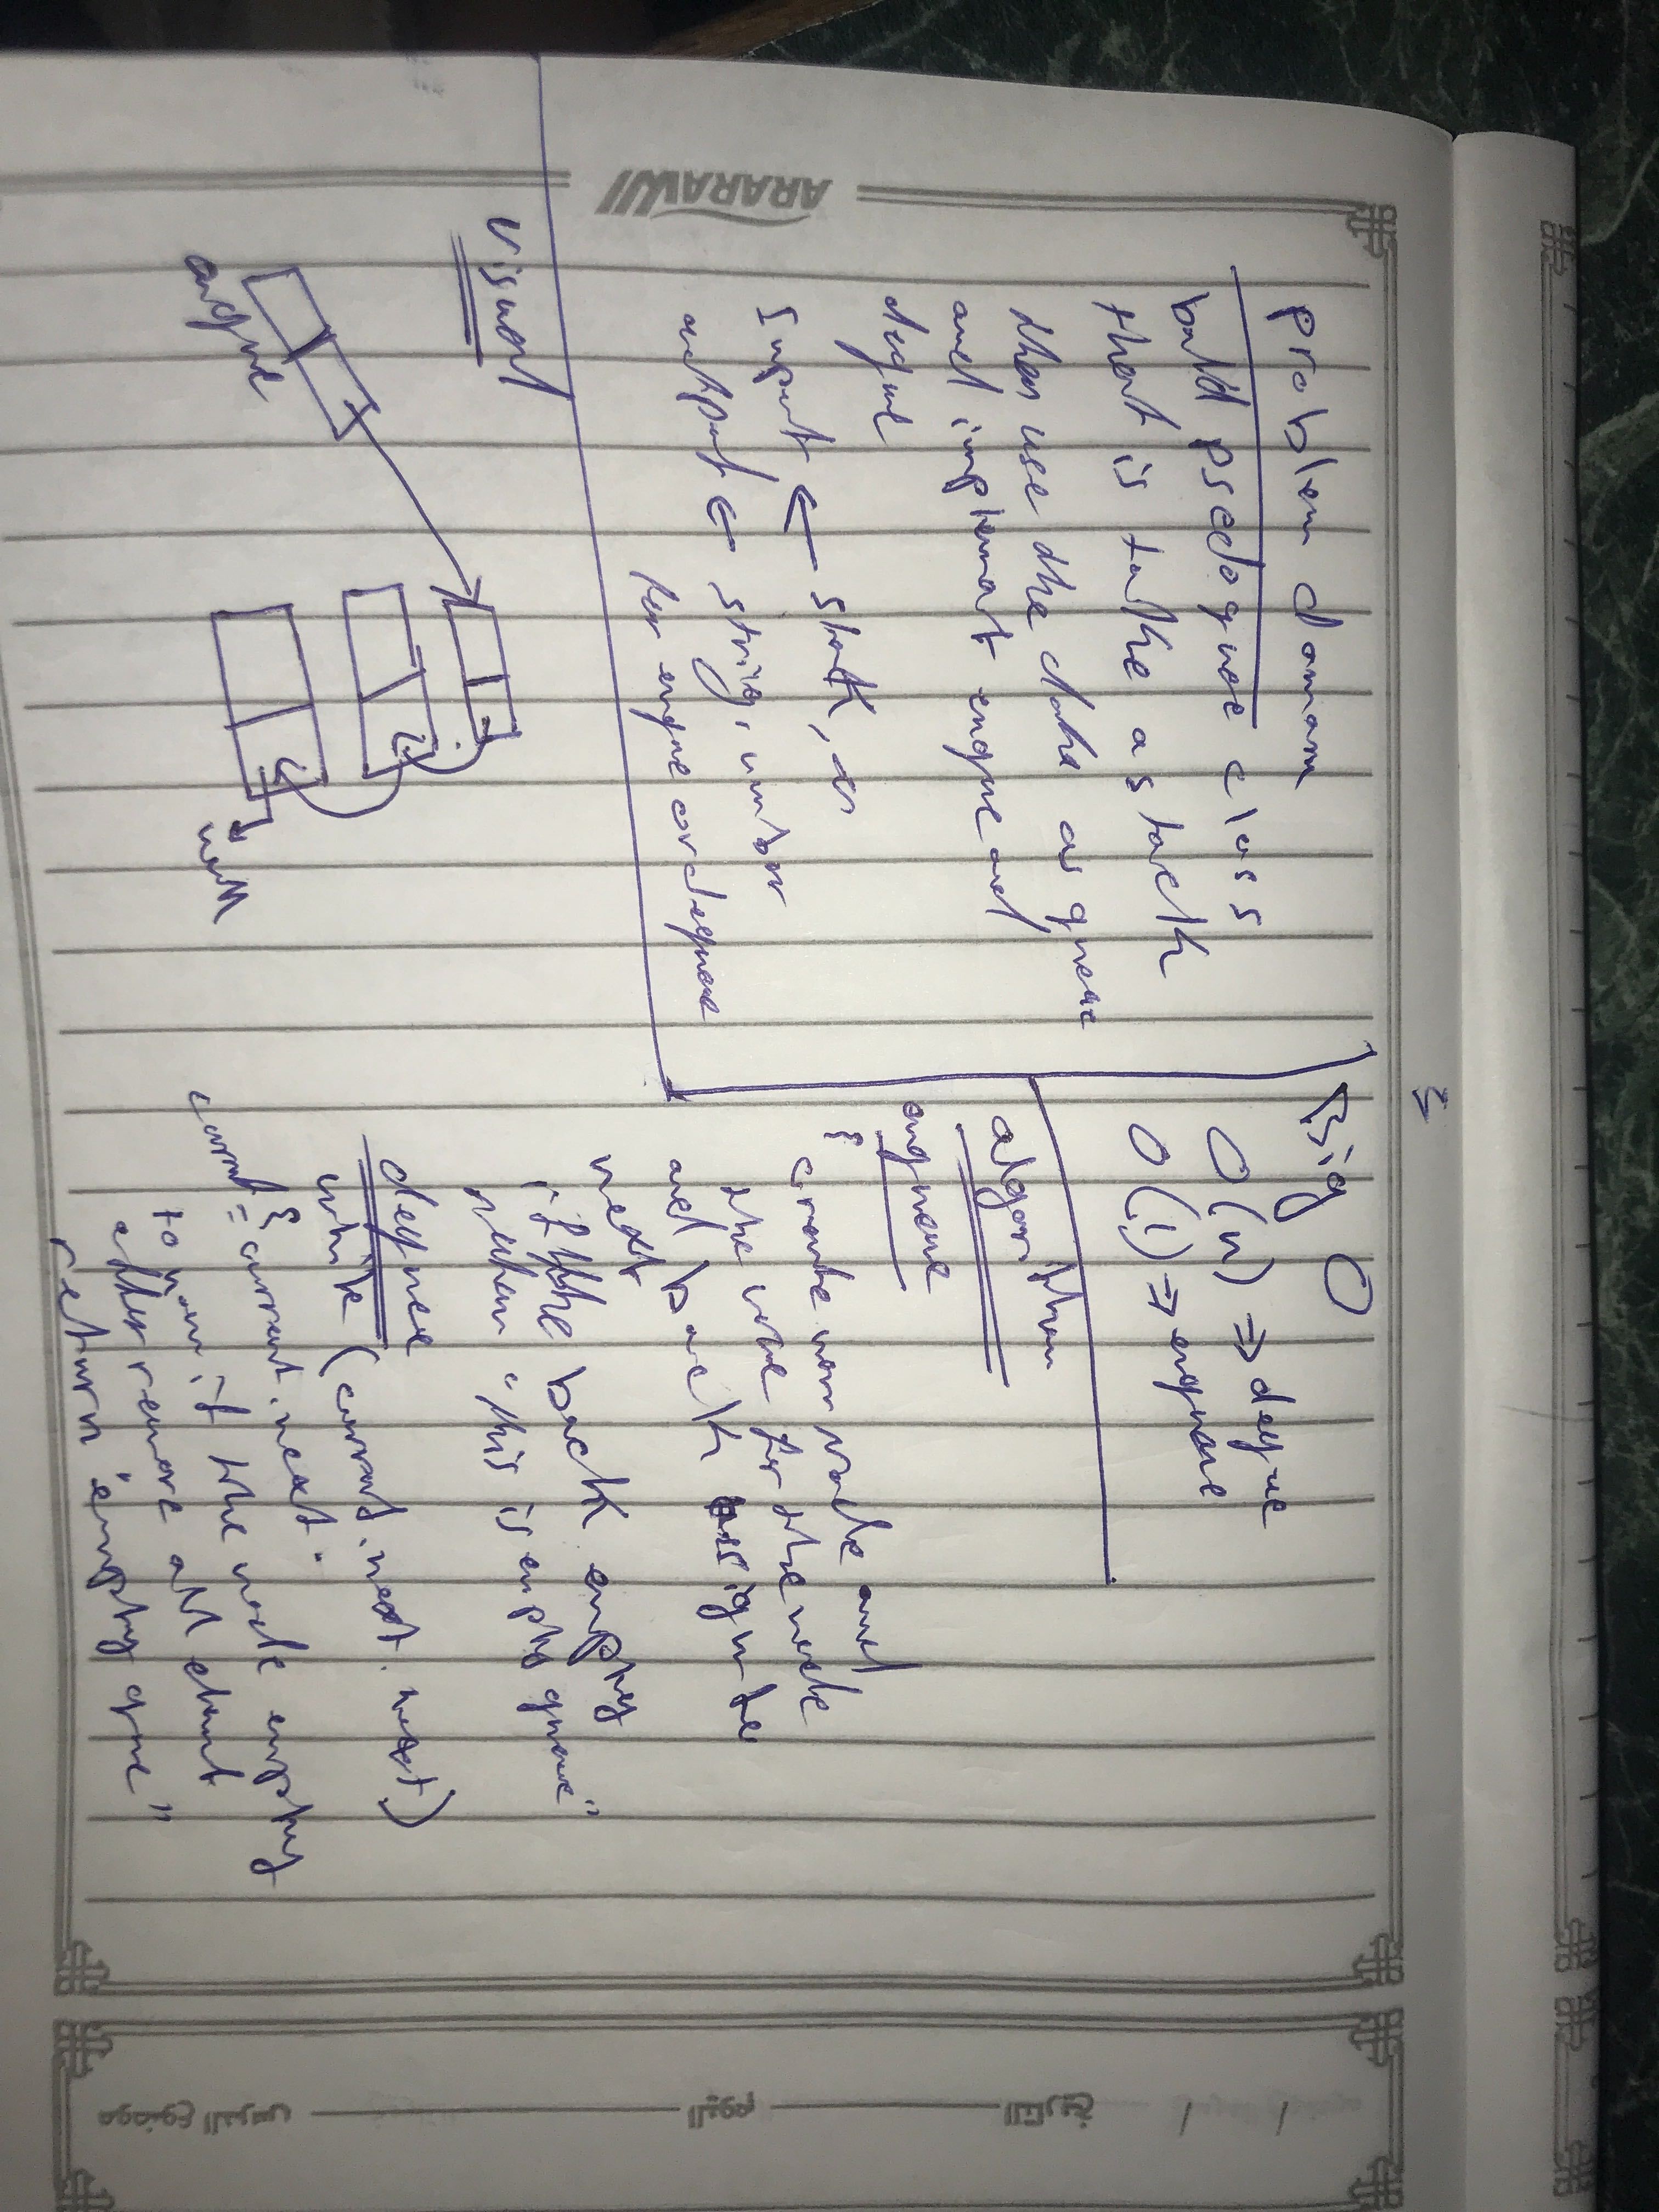 problem domam
build psedoquee class
that is take a stack
then use the dake as queue
and implemant enque and
deque
Input ← stak, or
output ← string, number
for enque or dequeue
Visual
enque
null
Big O
O(n) => deque
O(1) => enqueue
algorithm
enqueue
{ create new node and
the value for the node
and back assign to
next
if the back empty
return "this is empty queue"
dequee
while (current.next.next)
{
current = current.next.
to him if the node empty
after remove all elemt
return "empty que"
ARARAWI
اليوم
التاريخ
موضوع الدرس